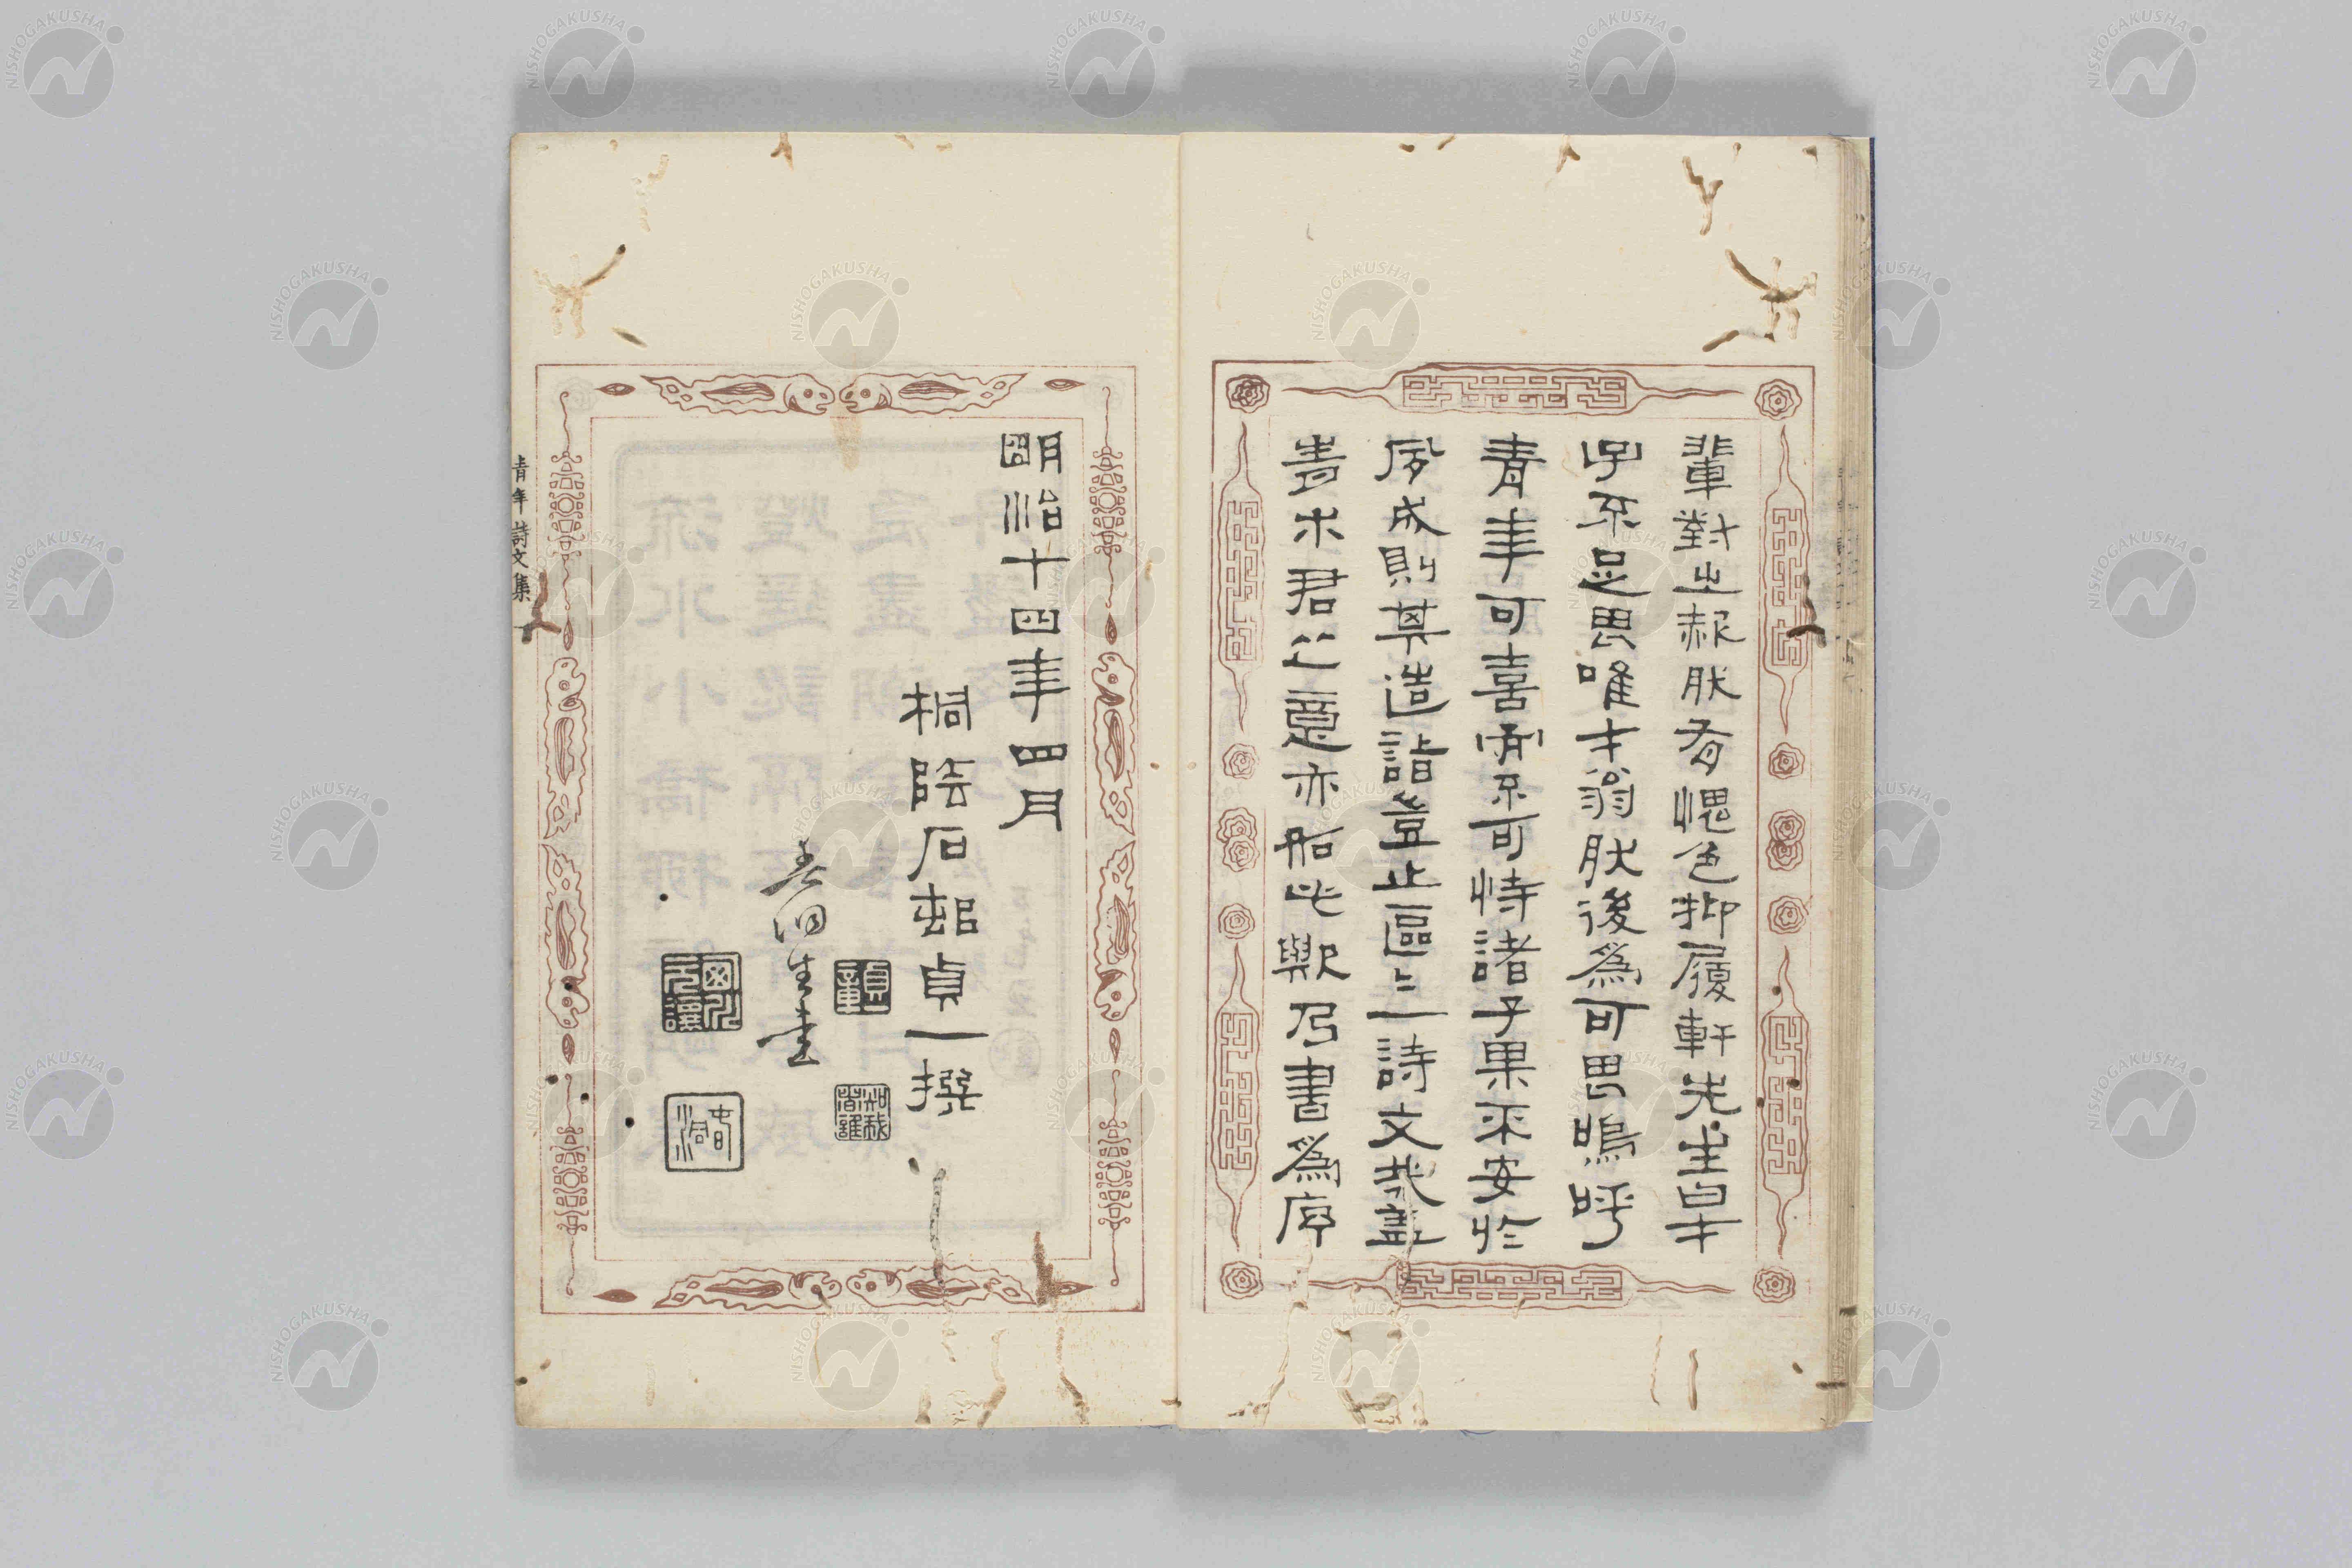 輩對之赧然有愧色抑履軒先生曰才
子不足畏唯才翁然後爲可畏嗚呼
青年可喜而不可恃諸子果不安於
夙成則其造詣豈止區〻一詩文哉蓋
青木君之意亦如此歟乃書爲序
明治十四年四月
桐陰石邨貞一撰
知我者誰
春洞生書
西川元讓
春洞
青年詩文集
NISHOGAKUSHA